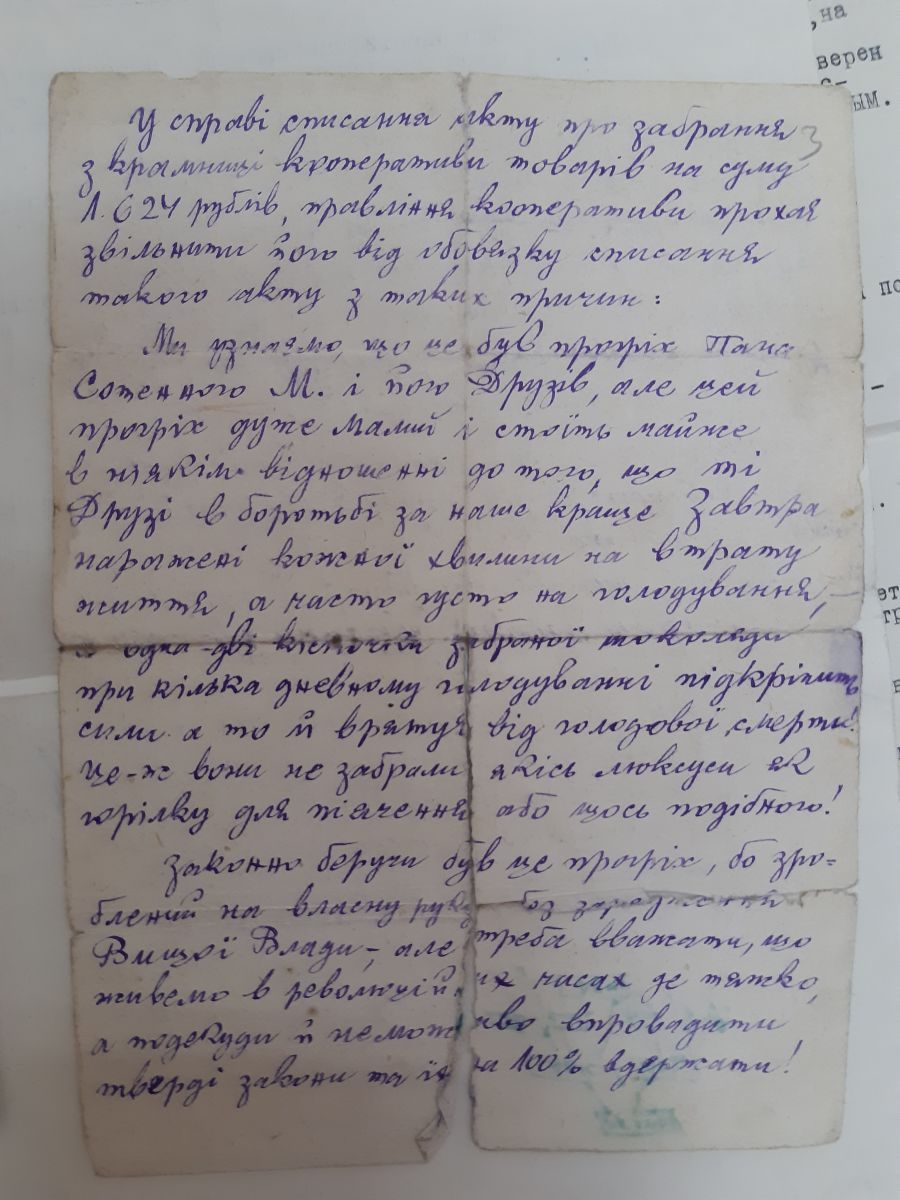 ,на
верен
с-
ым.
3
У справі списання акту про забрання
з крамниці кооперативи товарів на суму
1.624 рублів, правління кооперативи прохая
звільнити його від обовязку списання
такого акту з таких причин:
Ми узнаємо, що це був прогріх Пана
Сотенного М. і його Друзів, але цей
прогріх дуже малий і стоїть майже
в ніякім відношенні до того, що ті
Друзі в боротьбі за наше краще Завтра
наражені кожної хвилини на втрату
життя, а часто густо на голодування, –
а одна-дві кісточки забраної шоколяди
при кілька дневному голодуванні підкріпить
сили а то й врятує від голодової смерти!
Це-ж вони не забрали якісь люксуси як
горілку для піячення або щось подібного!
Законно беручи був це прогріх, бо зро-
блений на власну руку без зарядження
Вищої Влади –, але треба вважати, що
живемо в революцій их часах де тяжко,
а подекуди й немож иво впровадити
тверді закони та їх на 100% вдержати!
по